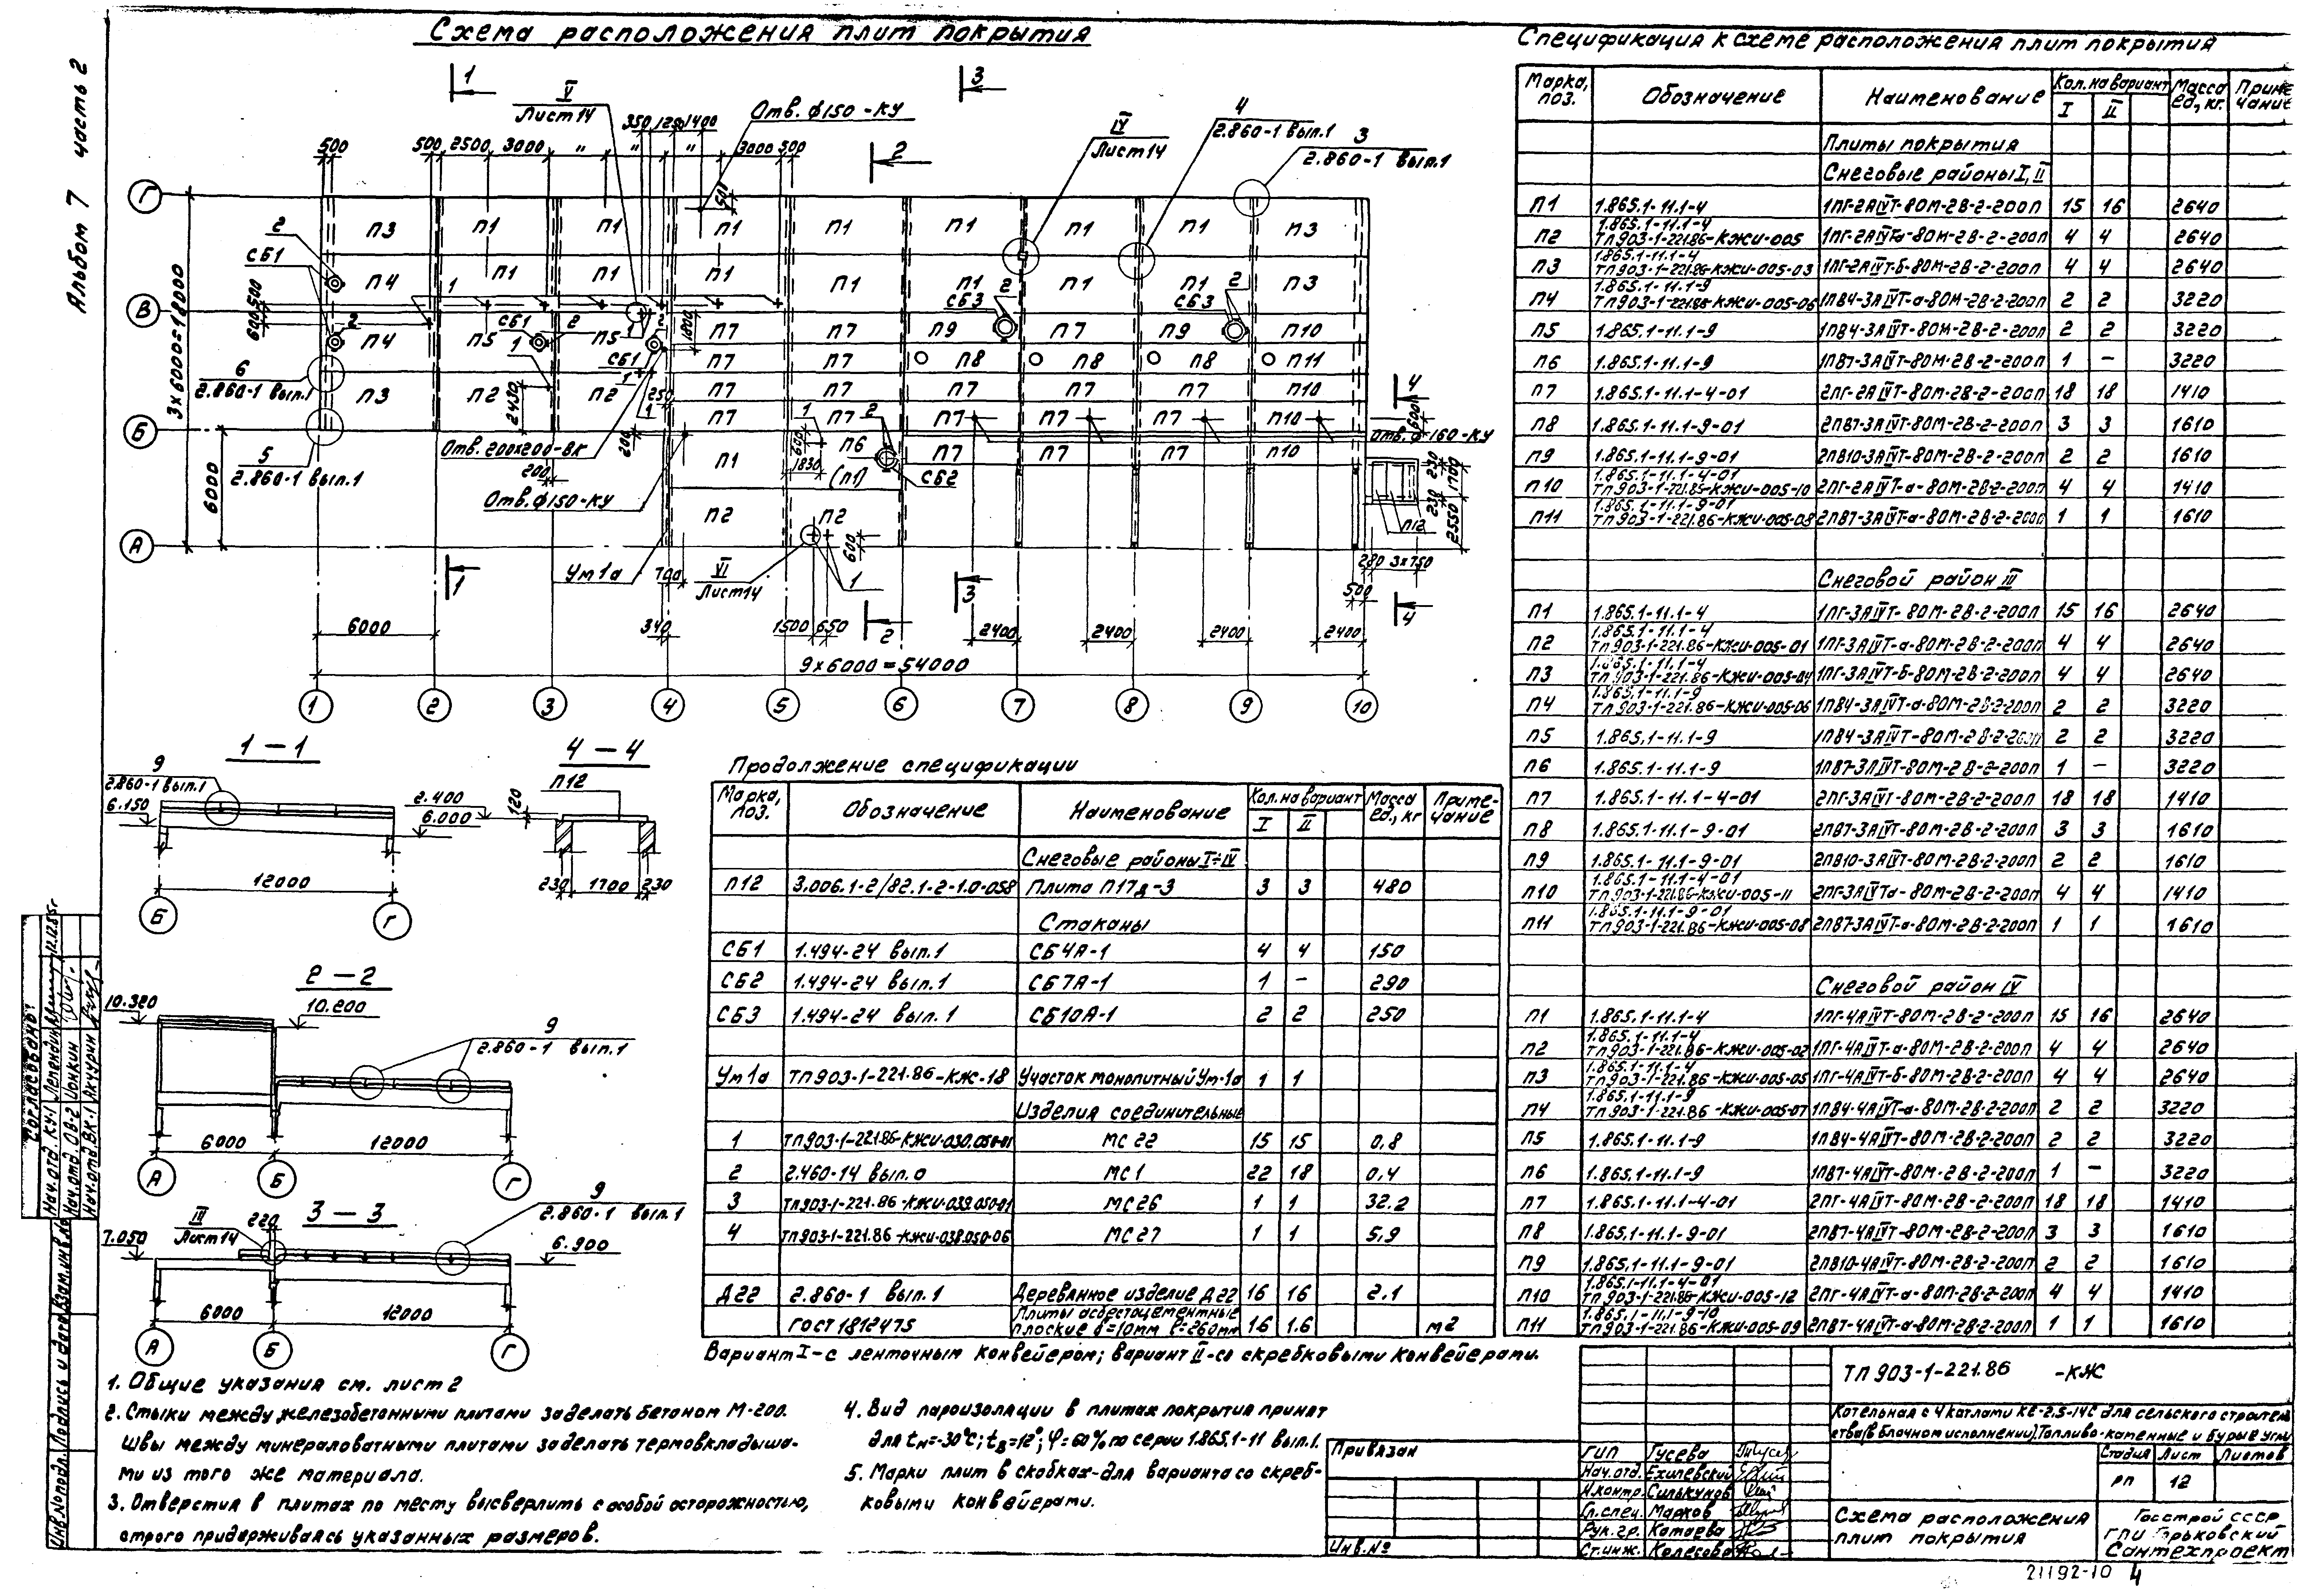 Альбом 7 часть 2
Схема расположения плит покрытия
1 3
V
Лист 14
Отв. ф150-КУ
IV
Лист 14
4
2.860-1 вып.1
3
2.860-1 вып.1
350 1400
500 500 2500 3000 " " " 3000 500
2
Г П3 П1 П1 П1 П1 П1 П1 П1 П3
500
2
СБ1
П4 П1 П1 П1 П1 П1 П1 П1 П3
1 2 СБ3 СБ3 2
В
3×6000=18000
600 500
П4 СБ1 2 П5 П5 1 2 1800 П7 П7 П9 П7 П9 П10
П7 П7 П8 П8 П8 П11
6
2.860-1 вып.1
П3 П2 П2 СБ1 250 П7 П7 П7 П7 П7 П10
2430
П7 П7 2 П7 П7 П7 П10
4
600
Б
5
2.860-1 вып.1
Отв. 200×200-ВК
200
200
П1 600 1830 П6 (П1) СБ2 П7 П7 П7 П10
Отв. ф160-КУ
Отв. ф150-КУ
6000
П2 П2
230 1700 230 2550
П12
А
Ум1а 700
VI
Лист 14
600
1
280 3×750
500
1 2 3 4
6000 340 1500 650 2400 2400 2400 2400
9×6000=54000
1 2 3 4 5 6 7 8 9 10
1-1
9
2.860-1 вып.1
6.150 6.000
12000
Б Г
4-4
П12
2.400 120
230 1700 230
2-2
10.320 10.200
9
2.860-1 вып.1
6000 12000
А Б Г
3-3
III
Лист 14
220
9
2.860-1 вып.1
7.050 6.900
6000 12000
А Б Г
Продолжение спецификации
Марка, поз. Обозначение Наименование Кол. на вариант I II Масса ед., кг Примечание
Снеговые районы I÷IV
П12 3.006.1-2/82.1-2-1.0-058 Плита П17д-3 3 3 480
Стаканы
СБ1 1.494-24 вып.1 СБ4А-1 4 4 150
СБ2 1.494-24 вып.1 СБ7А-1 1 - 290
СБ3 1.494-24 вып.1 СБ10А-1 2 2 250
Ум1а ТП903-1-221.86-КЖ-18 Участок монолитный Ум-1а 1 1
Изделия соединительные
1 ТП903-1-221.86-КЖИ-030.050-01 МС22 15 15 0,8
2 2.460-14 вып.0 МС1 22 18 0,4
3 ТП903-1-221.86-КЖИ-039.050-01 МС26 1 1 32.2
4 ТП903-1-221.86-КЖИ-038.050-06 МС27 1 1 5,9
Д22 2.860-1 вып.1 Деревянное изделие Д22 16 16 2.1
ГОСТ 18124-75 Плиты асбестоцементные плоские δ=10мм ℓ=260мм 1.6 1.6 м2
Вариант I-с ленточным конвейером; вариант II-со скребковыми конвейерами.
Спецификация к схеме расположения плит покрытия
Марка, поз. Обозначение Наименование Кол. на вариант I II Масса ед., кг. Примечание
Плиты покрытия
Снеговые районы I, II
П1 1.865.1-11.1-4 1ПГ-2АIVТ-80М-2В-2-200П 15 16 2640
П2 1.865.1-11.1-4 ТП903-1-221.86-КЖИ-005 1ПГ-2АIVТа-80М-2В-2-200П 4 4 2640
П3 1.865.1-11.1-4 ТП903-1-221.86-КЖИ-005-03 1ПГ-2АIVТ-Б-80М-2В-2-200П 4 4 2640
П4 1.865.1-11.1-9 ТП903-1-221.86-КЖИ-005-06 1ПВ4-3АIVТ-а-80М-2В-2-200П 2 2 3220
П5 1.865.1-11.1-9 1ПВ4-3АIVТ-80М-2В-2-200П 2 2 3220
П6 1.865.1-11.1-9 1ПВ7-3АIVТ-80М-2В-2-200П 1 - 3220
П7 1.865.1-11.1-4-01 2ПГ-2АIVТ-80М-2В-2-200П 18 18 1410
П8 1.865.1-11.1-9-01 2ПВ7-3АIVТ-80М-2В-2-200П 3 3 1610
П9 1.865.1-11.1-9-01 2ПВ10-3АIVТ-80М-2В-2-200П 2 2 1610
П10 1.865.1-11.1-4-01 ТП903-1-221.85-КЖИ-005-10 2ПГ-2АIVТ-а-80М-2В-2-200П 4 4 1410
П11 1.865.1-11.1-9-01 ТП903-1-221.86-КЖИ-005-08 2ПВ7-3АIVТ-а-80М-2В-2-200П 1 1 1610
Снеговой район III
П1 1.865.1-11.1-4 1ПГ-3АIVТ-80М-2В-2-200П 15 16 2640
П2 1.865.1-11.1-4 ТП903-1-221.86-КЖИ-005-01 1ПГ-3АIVТ-а-80М-2В-2-200П 4 4 2640
П3 1.865.1-11.1-4 ТП903-1-221.86-КЖИ-005-04 1ПГ-3АIVТ-Б-80М-2В-2-200П 4 4 2640
П4 1.865.1-11.1-9 ТП903-1-221.86-КЖИ-005-06 1ПВ4-3АIVТ-а-80М-2В-2-200П 2 2 3220
П5 1.865.1-11.1-9 1ПВ4-3АIVТ-80М-2В-2-200П 2 2 3220
П6 1.865.1-11.1-9 1ПВ7-3АIVТ-80М-2В-2-200П 1 - 3220
П7 1.865.1-11.1-4-01 2ПГ-3АIVТ-80М-2В-2-200П 18 18 1410
П8 1.865.1-11.1-9-01 2ПВ7-3АIVТ-80М-2В-2-200П 3 3 1610
П9 1.865.1-11.1-9-01 2ПВ10-3АIVТ-80М-2В-2-200П 2 2 1610
П10 1.865.1-11.1-4-01 ТП903-1-221.86-КЖИ-005-11 2ПГ-3АIVТа-80М-2В-2-200П 4 4 1410
П11 1.865.1-11.1-9-01 ТП903-1-221.86-КЖИ-005-08 2ПВ7-3АIVТ-а-80М-2В-2-200П 1 1 1610
Снеговой район IV
П1 1.865.1-11.1-4 1ПГ-4АIVТ-80М-2В-2-200П 15 16 2640
П2 1.865.1-11.1-4 ТП903-1-221.86-КЖИ-005-02 1ПГ-4АIVТ-а-80М-2В-2-200П 4 4 2640
П3 1.865.1-11.1-4 ТП903-1-221.86-КЖИ-005-05 1ПГ-4АIVТ-Б-80М-2В-2-200П 4 4 2640
П4 1.865.1-11.1-9 ТП903-1-221.86-КЖИ-005-07 1ПВ4-4АIVТ-а-80М-2В-2-200П 2 2 3220
П5 1.865.1-11.1-9 1ПВ4-4АIVТ-80М-2В-2-200П 2 2 3220
П6 1.865.1-11.1-9 1ПВ7-4АIVТ-80М-2В-2-200П 1 - 3220
П7 1.865.1-11.1-4-01 2ПГ-4АIVТ-80М-2В-2-200П 18 18 1410
П8 1.865.1-11.1-9-01 2ПВ7-4АIVТ-80М-2В-2-200П 3 3 1610
П9 1.865.1-11.1-9-01 2ПВ10-4АIVТ-80М-2В-2-200П 2 2 1610
П10 1.865.1-11.1-4-01 ТП903-1-221.86-КЖИ-005-12 2ПГ-4АIVТ-а-80М-2В-2-200П 4 4 1410
П11 1.865.1-11.1-9-10 ТП903-1-221.86-КЖИ-005-09 2ПВ7-4АIVТ-а-80М-2В-2-200П 1 1 1610
1. Общие указания см. лист 2
2. Стыки между железобетонными плитами заделать бетоном М-200.
Швы между минераловатными плитами заделать термовкладыша-
ми из того же материала.
3. Отверстия в плитах по месту высверлить с особой осторожностью,
строго придерживаясь указанных размеров.
4. Вид пароизоляции в плитах покрытия принят
для tн=-30°С; tв=12°; φ=60% по серии 1.865.1-11 вып.1.
5. Марки плит в скобках-для варианта со скреб-
ковыми конвейерами.
Привязан
Инв.№
ТП 903-1-221.86 -КЖ
Котельная с 4 котлами КЕ-2,5-14С для сельского строитель
ства (в блочном исполнении). Топливо-каменные и бурые угли
ГИП Гусева
Нач.отд. Ехилевский
Н.контр. Силькунов
Гл.спец. Марков
Рук.гр. Катаева
Ст.инж. Колесова
Стадия Лист Листов
РП 12
Схема расположения
плит покрытия
Госстрой СССР
ГПИ Горьковский
Сантехпроект
21192-10 4
Согласовано:
Нач.отд. КУ-1 Лепендин 12.12.85г
Нач.отд ОВ-2 Цонкин
Нач.отд ВК-1 Акчурин
Инв.№ подл. Подпись и дата Взам.инв.№